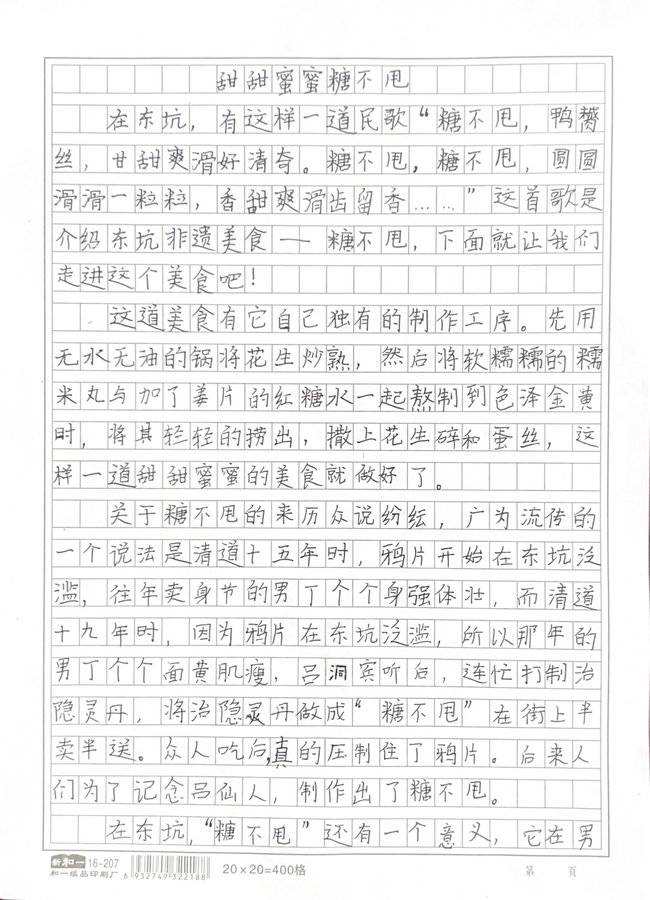 甜甜蜜蜜糖不甩
在东坑，有这样一道民歌“糖不甩，鸭赞
丝，甘甜爽滑好清奇。糖不甩，糖不甩，圆圆
滑滑一粒粒，香甜爽滑齿留香……”这首歌是
介绍东坑非遗美食——糖不甩，下面就让我们
走进这个美食吧！
这道美食有它自己独有的制作工序。先用
无水无油的锅将花生炒熟，然后将软糯糯的糯
米丸与加了姜片的红糖水一起熬制到色泽金黄
时，将其轻轻的捞出，撒上花生碎和蛋丝，这
样一道甜甜蜜蜜的美食就做好了。
关于糖不甩的来历众说纷纭，广为流传的
一个说法是清道十五年时，鸦片开始在东坑泛
滥，往年卖身节的男丁个个身强体壮，而清道
十九年时，因为鸦片在东坑泛滥，所以那年的
男丁个个面黄肌瘦，吕洞宾听后，连忙打制治
隐灵丹，将治隐灵丹做成“糖不甩”在街上半
卖半送。众人吃后，真的压制住了鸦片。后来人
们为了记念吕仙人，制作出了糖不甩。
在东坑，“糖不甩”还有一个意义，它在男
新和一 16-207
和一纸品印刷厂 6 932749 322188
20×20=400格
第 頁